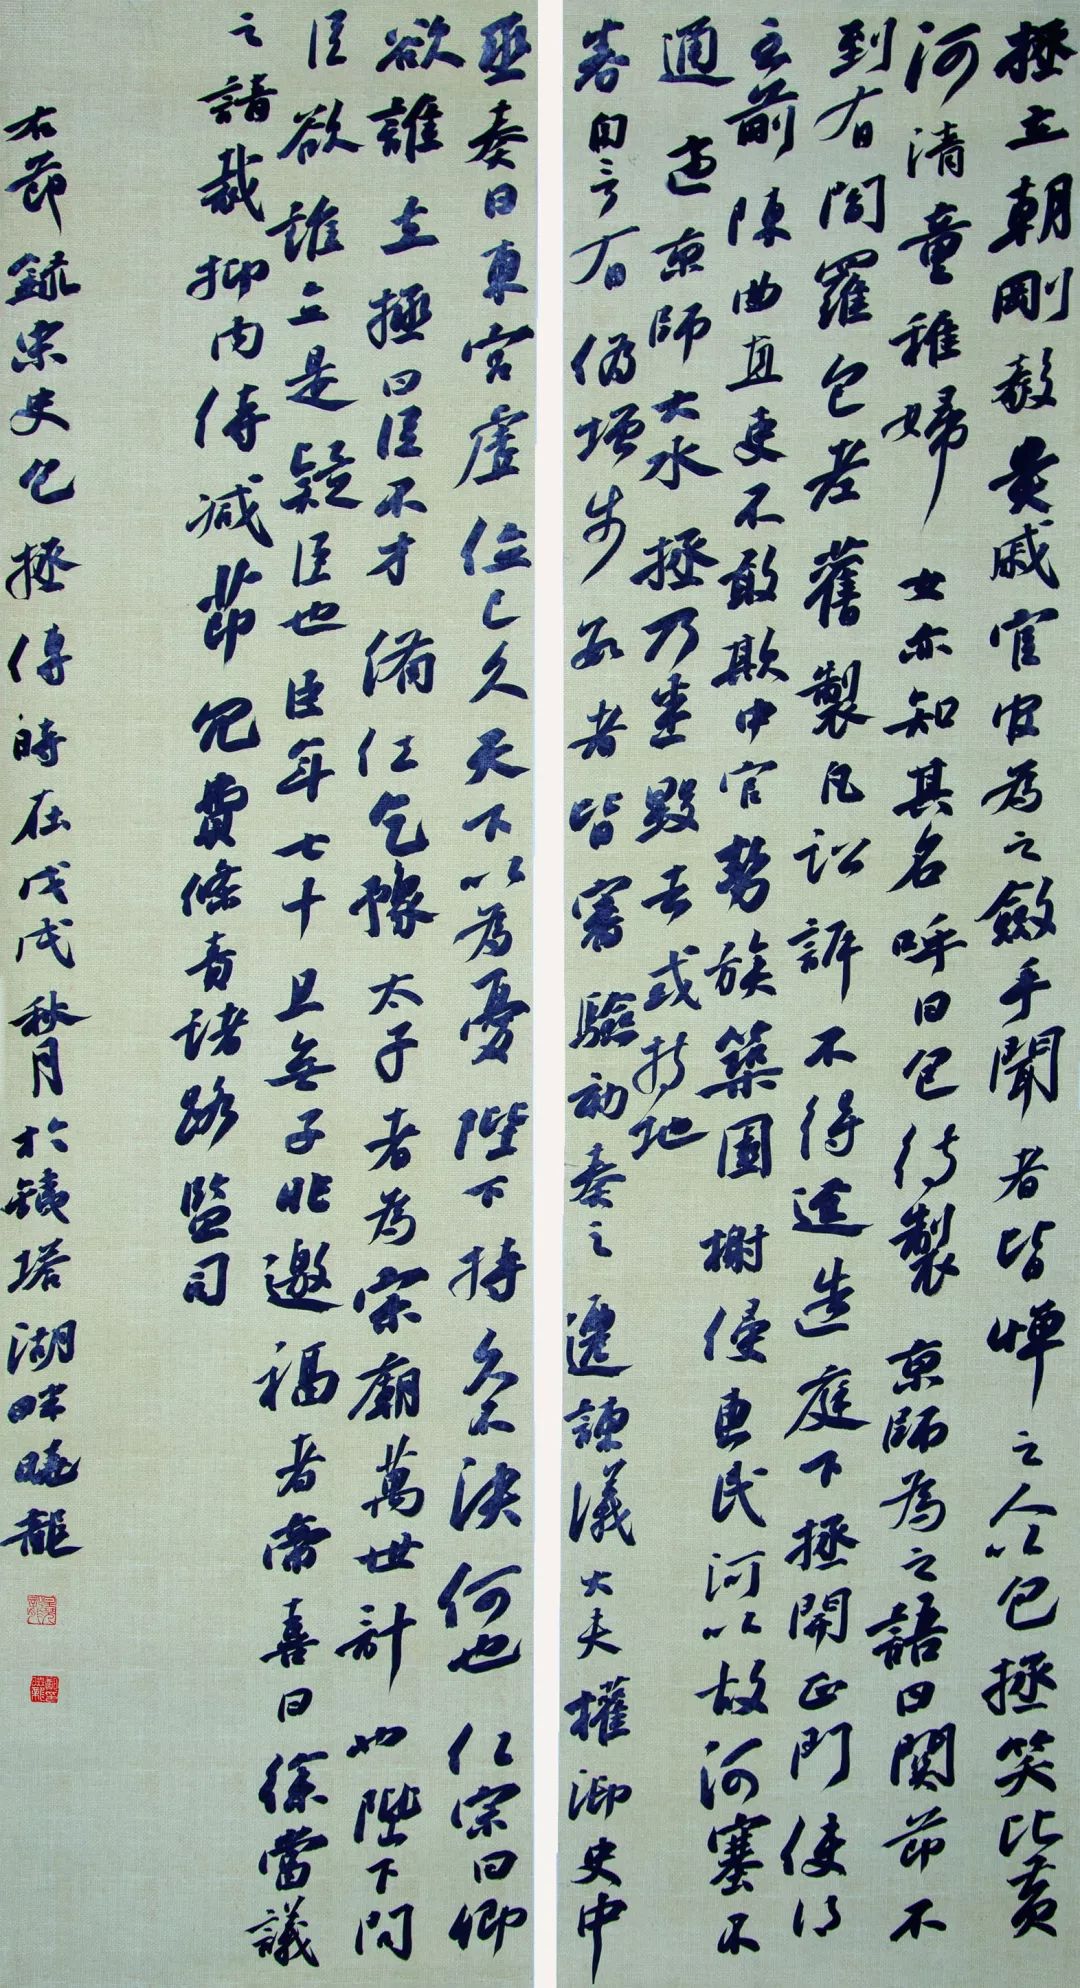 拯立朝剛毅貴戚宦官為之斂手聞者皆憚之人以包拯笑比黃
河清童稚婦女亦知其名呼曰包待製京師為之語曰關節不
到有閻羅包老舊製凡訟訴不得逕造庭下拯開正門使得
至前陳曲直吏不敢欺中官勢族築園榭侵惠民河以故河塞不
通適京師大水拯乃悉毀去或持地
券自言有偽增步數者皆審驗劾奏之遷諫議大夫權御史中
丞奏曰東宮虛位已久天下以為憂陛下持久不決何也仁宗曰卿
欲誰立拯曰臣不才備位乞豫太子者為宗廟萬世計也陛下問
臣欲誰立是疑臣也臣年七十且無子非邀福者帝喜曰徐當議
之請裁抑內侍減節冗費條責諸路監司
右節錄宋史包拯傳時在戊戌秋月於鐵塔湖畔曉龍